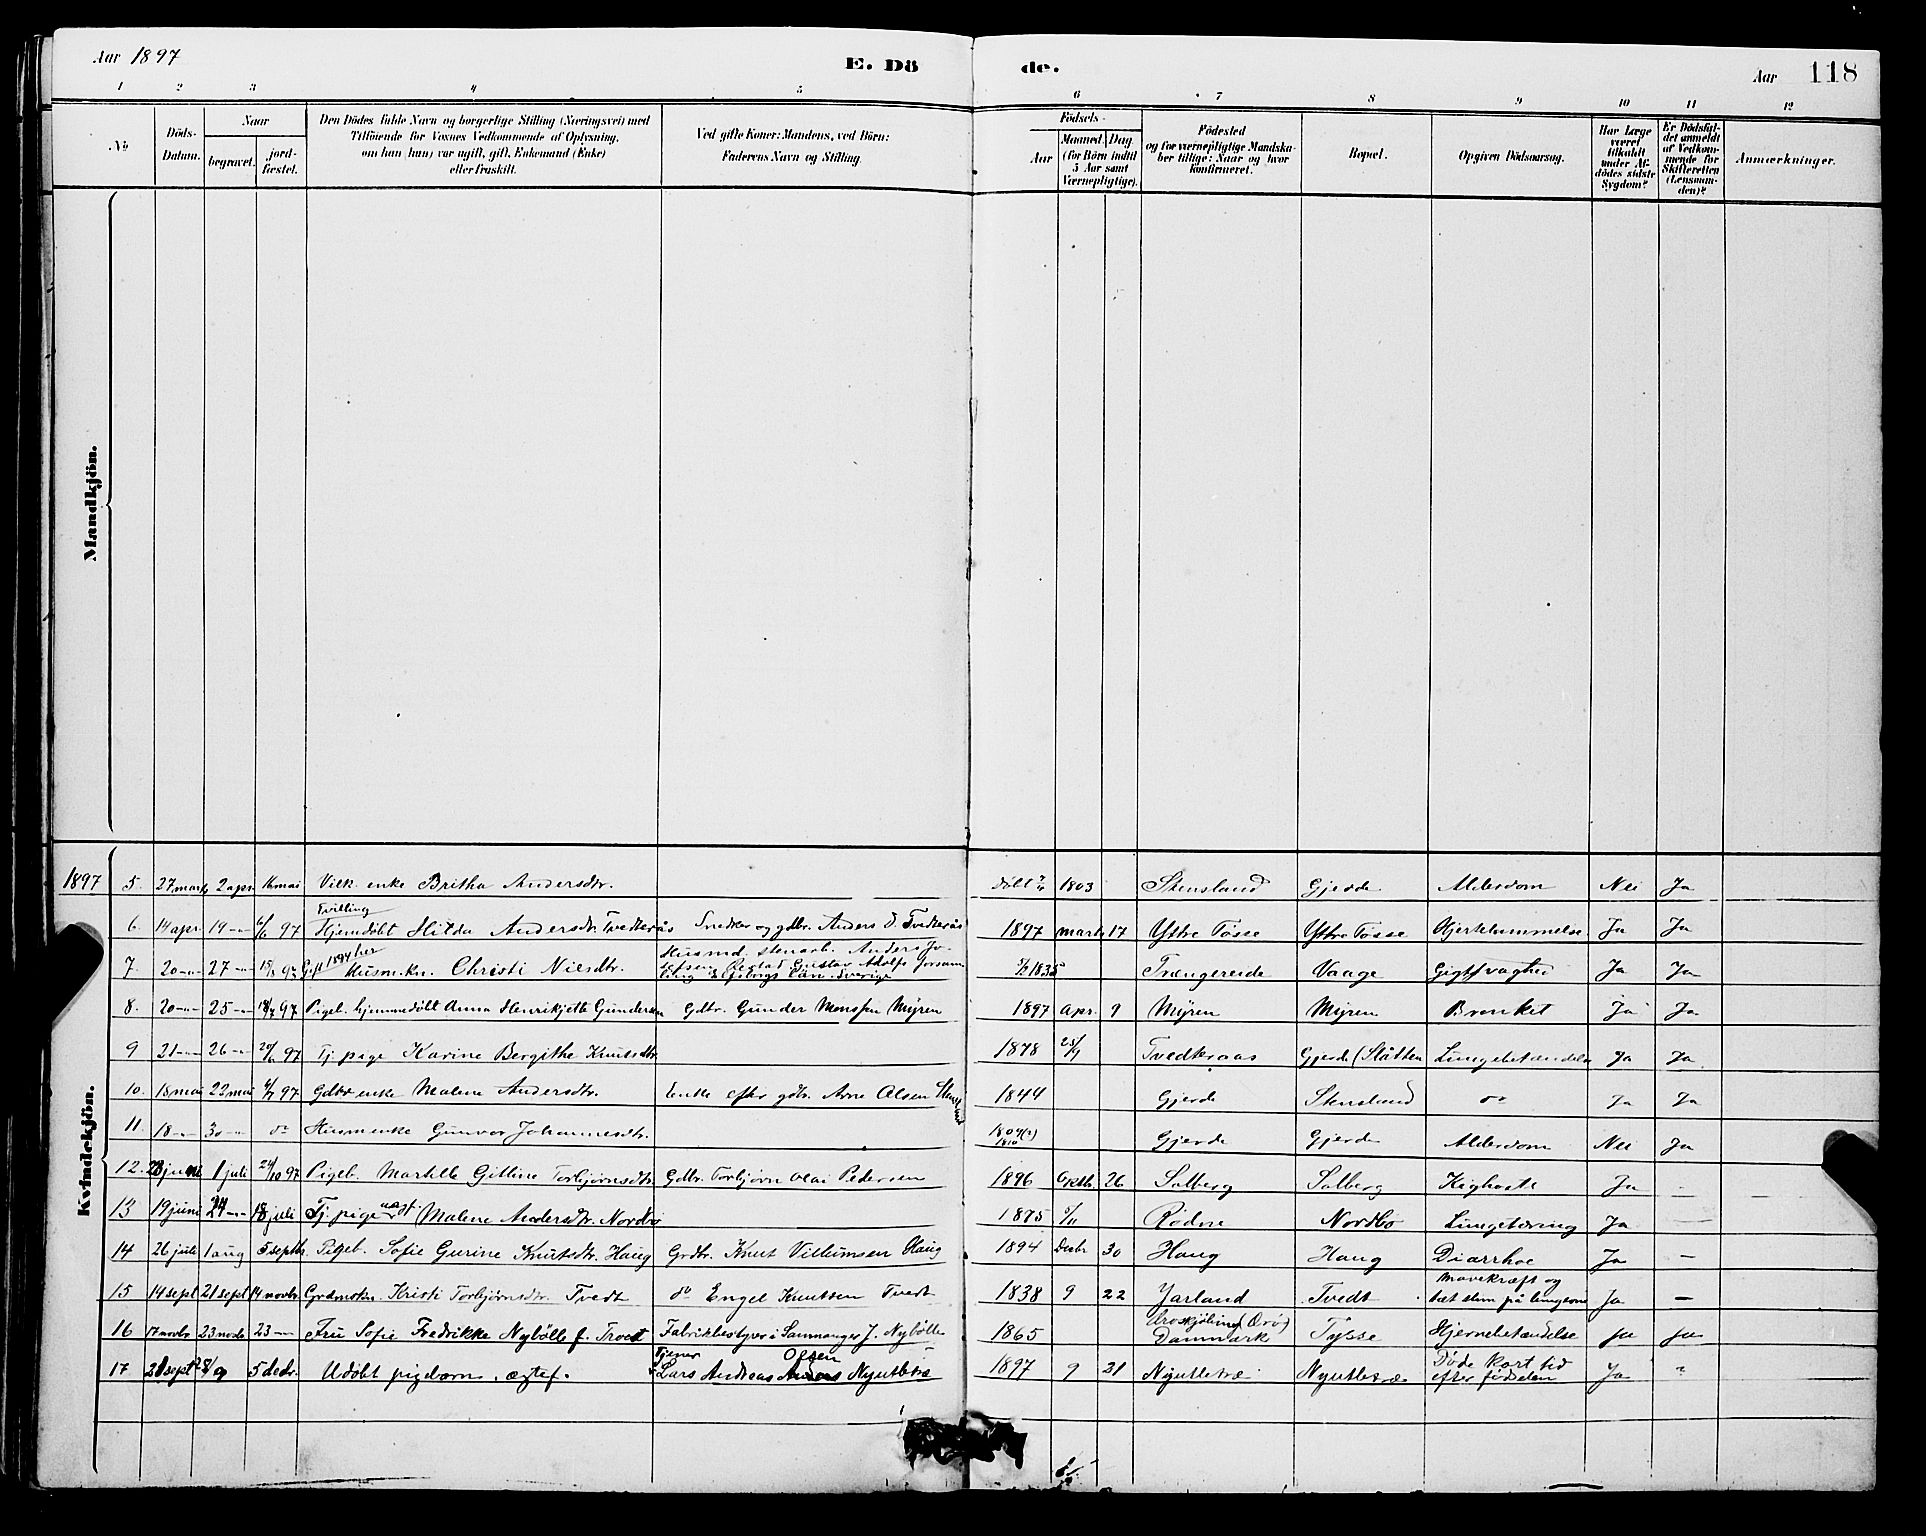 Aar 1897
E. Dö
de.
Aar 118
1 2 3 4 5 6 7 8 9 10 11 12
No
Döds-Datum.
Naar
begravet.
jord-fæstet.
Den Dödes fulde Navn og borgerlige Stilling (Næringsvei) med
Tilföiende for Voxnes Vedkommende af Oplysning,
om han (hun) var ugift, gift, Enkemand (Enke)
eller fraskilt.
Ved gifte Koner: Mandens, ved Börn:
Faderens Navn og Stilling.
Födsels-
Aar
Maaned. Dag
(for Börn indtil
5 Aar samt
Værnepligtige).
Födested
og for værnepligtige Mandska-
ber tillige: Naar og hvor
konfirmeret.
Bopæl.
Opgiven Dödsaarsag.
Har Læge
været
tilkaldt
under Af-
dödes sidste
Sygdom?
Er Dödsfal-
det anmeldt
af Vedkom-
mende for
Skifteretten
(Lensman-
den)?
Anmærkninger.
Mandkjön.
Kvindekjön.
1897 5. 27 marts 2 apr. 16 mai Vilk. enke Britha Andersdtr. Döbt 1803 Stensland Gjerde Alderdom Nei Ja
Tvilling
6. 14 apr. 19 -"- 97 Hjemdöbt Hilda Andersdtr. Tvedteraas Snedker og gdbr. Anders D. Tvedteraas 1897 marts 17 Ytre Tösse Ytre Tösse Hjertelammelse Ja Ja
Gift 1894 her
7. 20 -"- 27 -"- Husm. kn. Christi Nielsdtr. Husmd. stenarb. Anders Jo- 1835 Trængereide Vaage Gigtsvaghed Ja Ja
8. 20 -"- 25 -"- 18/7 97 Pigeb. hjemmedöbt Anna Henrikjette Gundersen Gdbr. Gunder Monssen Myren 1897 Apr. 9 Myren Myren Bronkit Ja Ja
9 21 -"- 26 -"- 97 Tj. pige Karine Bergithe Knutsdtr. 1878 Tvedteraas Gjerde (Slåtten Lungebetændelse Ja Ja
10. 18 mai 22 mai 97 Gdbr enke Malene Andersdtr. Enke efter gdbr. Arne Olsen 1844 Gjerde Stensland do Ja Ja
11. 18 -"- 30 -"- do Husm enke Gunvor Johannesdtr. 1809(?) 1810 Gjerde Gjerde Alderdom Nei Ja
12. 28 juni 1 juli 24/10 97 Pigeb. Marthe Gittine Torbjörnsdtr. Gdbr. Torbjörn Olai Pedersen 1896 Oktb. 26 Solberg Solberg Kighoste Ja -
13 19 juni 24 -"- 18 juli Tj. pige ugift Malene Andersdtr. Nordbö 1875 Rödne Nordbö Lungetæring Ja -
14 26 juli 1 aug 5 septb. Pigeb. Sofie Gurine Knutsdtr. Haug Grdbr. Knut Villumsen Haug 1894 Decbr 30 Haug Haug Diarrhoe Ja -
15 14 sept 21 sept 14 novbr. Grdmskn. Kristi Torbjörnsdtr. Tvedt do Engel Knutsen Tvedt 1838 9 22 Yarland Tvedt Mavekræft og
tæt slim på lungerne Ja -
16 17 novbr 23 novbr 23 -"- Fru Sofie Fredrikke Nybölle f. Troest Fabrikbestyrer i Samnanger J. Nybölle 1865 Æröskjöbing (Ærö)
Danmark Tysse Hjernebetændelse Ja Ja
17 21 sept 28/9 5 decbr. Udöbt pigebarn, ægtef. Tjener Lars Andreas Olsen Nyutletræ 1897 9 21 Nyutletræ Nyutletræ Döde kort tid
efter födselen Ja "